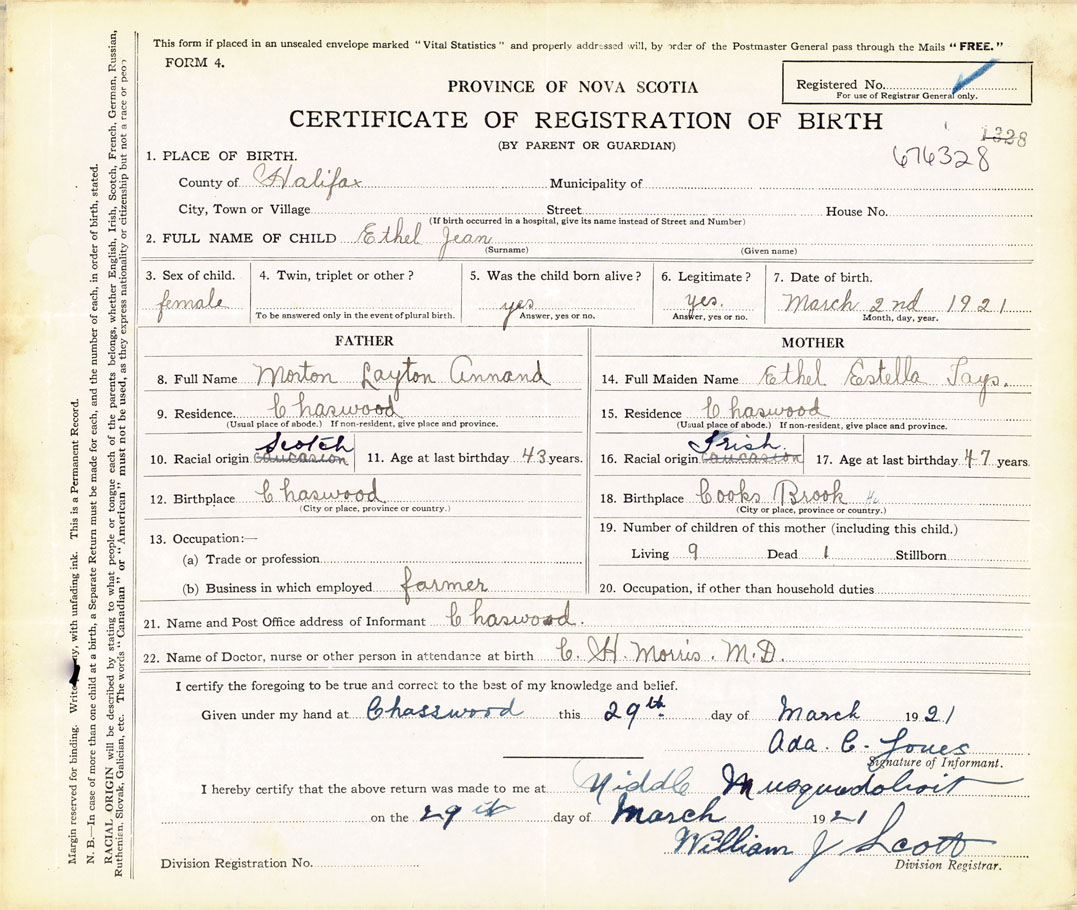 This form if placed in an unsealed envelope marked "Vital Statistics" and properly addressed will, by order of the Postmaster General pass through the Mails "FREE."
FORM 4.
Registered No.
For use of Registrar General only.
PROVINCE OF NOVA SCOTIA
CERTIFICATE OF REGISTRATION OF BIRTH
(BY PARENT OR GUARDIAN)
1328
676328
1. PLACE OF BIRTH.
County of Halifax Municipality of
City, Town or Village Street House No.
(If birth occurred in a hospital, give its name instead of Street and Number)
2. FULL NAME OF CHILD Ethel Jean
(Surname) (Given name)
3. Sex of child. 4. Twin, triplet or other? 5. Was the child born alive? 6. Legitimate? 7. Date of birth.
female yes yes. March 2nd 1921
To be answered only in the event of plural birth. Answer, yes or no. Answer, yes or no. Month, day, year.
FATHER
8. Full Name Morton Layton Annand
9. Residence. Chaswood
(Usual place of abode.) If non-resident, give place and province.
Scotch
10. Racial origin caucasion 11. Age at last birthday 43 years.
12. Birthplace Chaswood
(City or place, province or country.)
13. Occupation:—
(a) Trade or profession
(b) Business in which employed farmer
MOTHER
14. Full Maiden Name Ethel Estella Tays.
15. Residence Chaswood
(Usual place of abode.) If non-resident, give place and province.
Irish
16. Racial origin caucasion 17. Age at last birthday 47 years
18. Birthplace Cooks Brook
(City or place, province or country.)
19. Number of children of this mother (including this child.)
Living 9 Dead 1 Stillborn
20. Occupation, if other than household duties
21. Name and Post Office address of Informant Chaswood.
22. Name of Doctor, nurse or other person in attendance at birth C. H. Morris. M.D.
I certify the foregoing to be true and correct to the best of my knowledge and belief.
Given under my hand at Chasswood this 29th day of March 1921
Ada. C. Jones
Signature of Informant.
I hereby certify that the above return was made to me at Middle Musquodoboit
on the 29th day of March 1921
William J Scott
Division Registrar.
Division Registration No.
Margin reserved for binding. Write with unfading ink. This is a Permanent Record.
N. B.—In case of more than one child at a birth, a Separate Return must be made for each, and the number of each, in order of birth, stated.
RACIAL ORIGIN will be described by stating to what people or tongue each of the parents belongs, whether English, Irish, Scotch, French, German, Russian,
Ruthenian, Slovak, Galician, etc. The words "Canadian" or "American" must not be used, as they express nationality or citizenship but not a race or